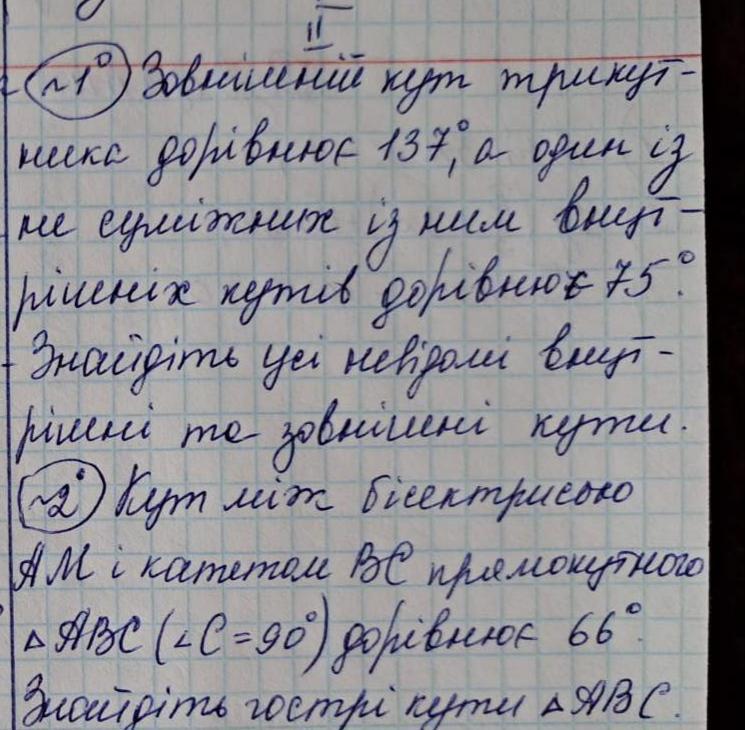 II
№1° Зовнішній кут трикут-
ника дорівнює 137°, а один із
не суміжних із ним внут-
рішніх кутів дорівнює 75°.
Знайдіть усі невідомі внут-
рішні та зовнішні кути.
№2° Кут між бісектрисою
АМ і катетом ВС прямокутного
△ АВС (∠C = 90°) дорівнює 66°.
Знайдіть гострі кути △ АВС.